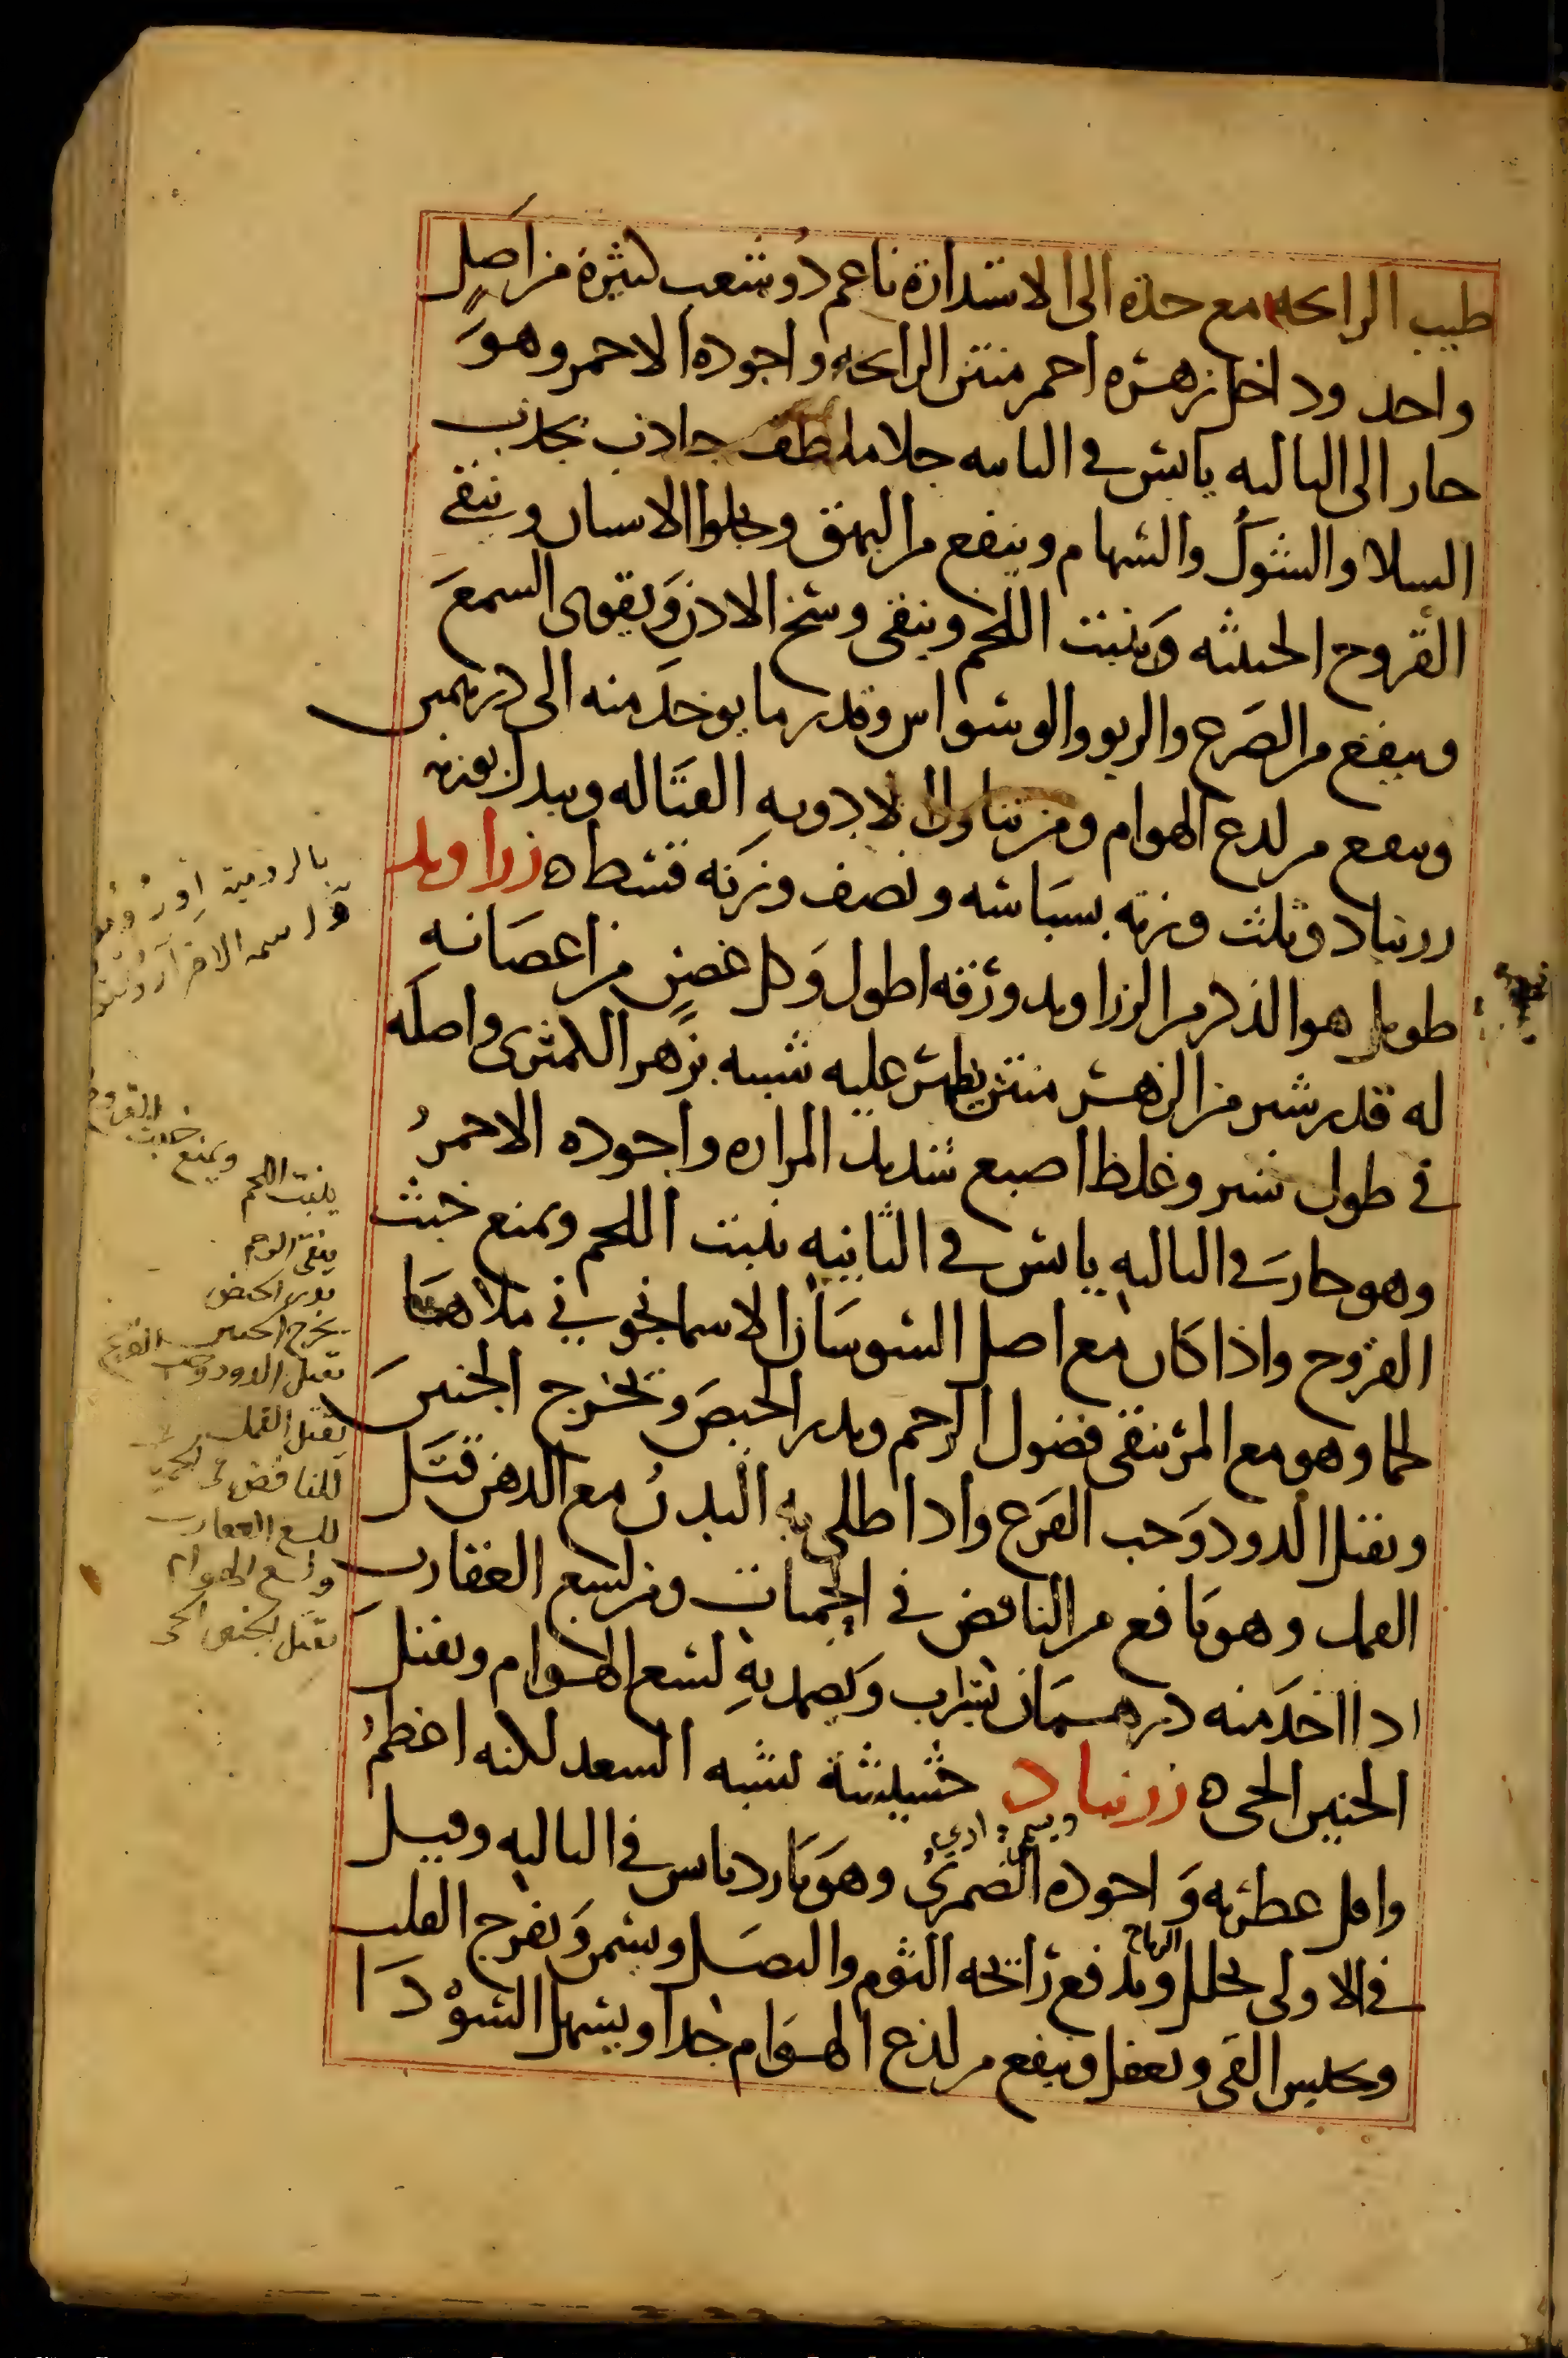 طيب الرايحه مع حدة الى الاستدارة ناعم ذو شعب كثيرة من اصل
واحد وداخل زهره احمر منتن الرايحه واجوده الاحمر وهو
حار الى الثالثه يابس في الثانيه جلا ملطف جاذب يجذب
السلا والشوك والسهام وينفع من البهق ويجلوا الاسنان وينقى
القروح الخبيثه وينبت اللحم وينقى وسخ الاذن ويقوى السمع
وينفع من الصرع والربو والوسواس وقدر ما يوخذ منه الى درهمين
وينفع من لدغ الهوام ومن تناول الادويه القتاله وبدله بوزنه
زرنباد وثلث وزنه بسباسه ونصف وزنه قسط ه زراوند
طويل هو الذكر من الزراوند ورقه اطول وكل غصن من اغصانه
له قدر شبر من الزهر منتن يظهر عليه شبيه بزهر الكمثرى واصله
في طول شبر وغلظ اصبع شديد المراره واجوده الاحمر
وهو حار في الثالثه يابس في الثانيه ينبت اللحم ويمنع خبث
القروح واذا كان مع اصل السوسان الاسمانجوني ملاها
لحما وهو مع المر ينقى فضول الرحم ويدر الحيض ويخرج الجنين
ويقتل الدود وحب القرع واذا طلى به البدن مع الدهن قتل
القمل وهو نافع من النافض في الحميات ومن لسع العقارب
اذا اخذ منه درهمان بشراب ويضمد به لسع الهوام ويقتل
الجنين الحى ه زرنباد حشيشة تشبه السعد لكنه اعظم
واقل عطريه واجوده الضمرى وهو حار يابس في الثالثه وقيل
في الاولى يحلل الرياح ويدفع رائحه الثوم والبصل ويسمن ويفرح القلب
ويحبس القى ويعقل وينفع من لدغ الهوام جدا ويسهل السودا
بالرومية
واسمه الاخر
ينبت اللحم ويمنع خبث القروح
ينقى الرحم
يدر الحيض
يخرج الجنين
يقتل الدود وحب القرع
يقتل القمل
للنافض في الحمى
للسع العقارب
ولسع الهوام
يقتل الجنين الحى